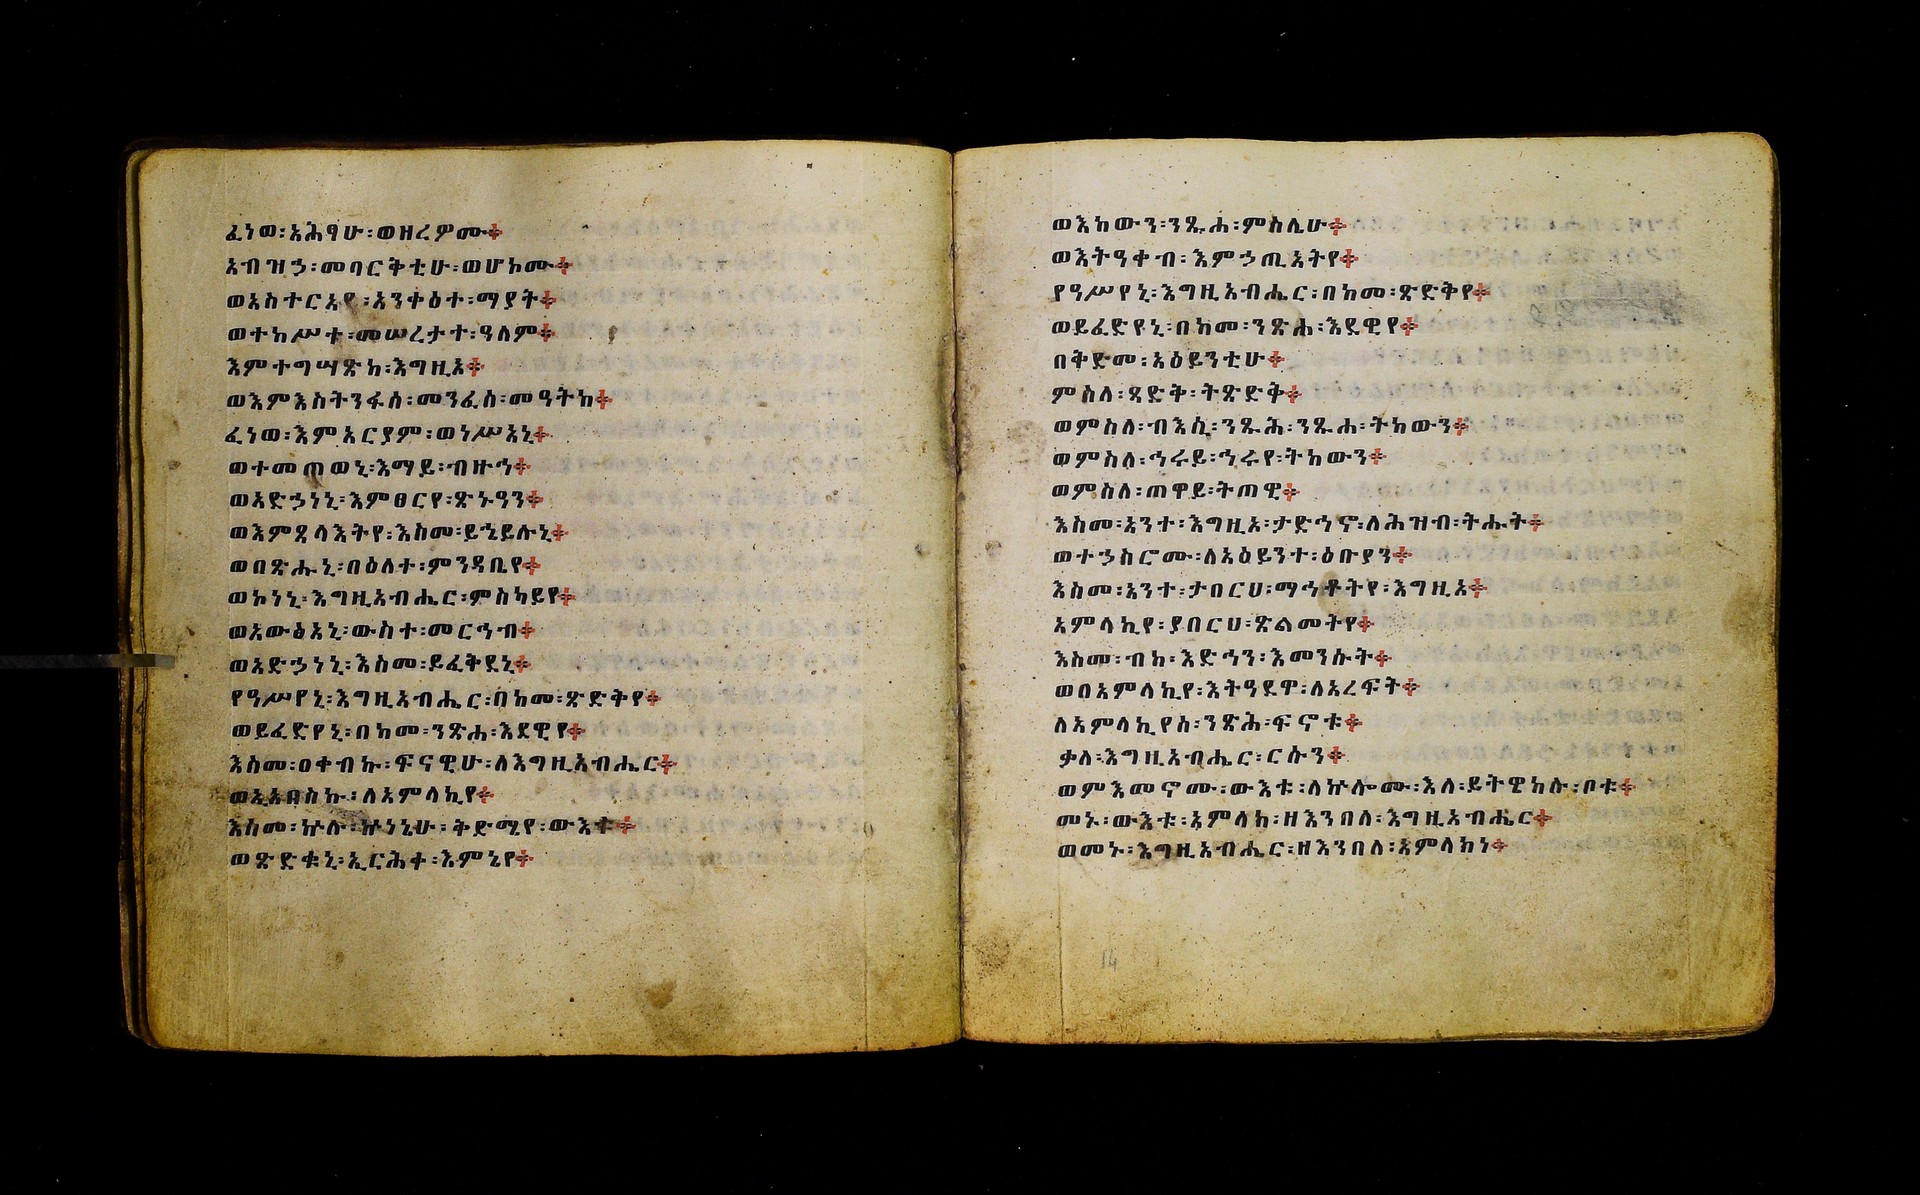 ፈነወ፡አሕፃሁ፡ወዘረዎሙ፨
አብዝኃ፡መባርቅቲሁ፡ወሆከሙ፨
ወአስተርአየ፡አንቀዕተ፡ማያት፨
ወተከሥተ፡መሠረታተ፡ዓለም፨
እምተግሣጽከ፡እግዚአ፨
ወእምእስትንፋሰ፡መንፈሰ፡መዓትከ፨
ፈነወ፡እምአርያም፡ወነሥአኒ፨
ወተመጠወኒ፡እማይ፡ብዙኅ፨
ወአድኃነኒ፡እምፀርየ፡ጽኑዓን፨
ወእምጸላእትየ፡እስመ፡ይኄይሉኒ፨
ወበጽሑኒ፡በዕለተ፡ምንዳቤየ፨
ወኮነኒ፡እግዚአብሔር፡ምስካይየ፨
ወአውፅአኒ፡ውስተ፡መርኅብ፨
ወአድኃነኒ፡እስመ፡ይፈቅደኒ፨
የዓሥየኒ፡እግዚአብሔር፡በከመ፡ጽድቅየ፨
ወይፈድየኒ፡በከመ፡ንጽሐ፡እደዊየ፨
እስመ፡ዐቀብኩ፡ፍናዊሁ፡ለእግዚአብሔር፨
ወኢአበስኩ፡ለአምላኪየ፨
እስመ፡ኵሉ፡ኵነኔሁ፡ቅድሜየ፡ውእቱ፨
ወጽድቁኒ፡ኢርሕቀ፡እምኔየ፨
ወእከውን፡ንጹሐ፡ምስሌሁ፨
ወእትዓቀብ፡እምኃጢአትየ፨
የዓሥየኒ፡እግዚአብሔር፡በከመ፡ጽድቅየ፨
ወይፈድየኒ፡በከመ፡ንጽሐ፡እደዊየ፨
በቅድመ፡አዕይንቲሁ፨
ምስለ፡ጻድቅ፡ትጸድቅ፨
ወምስለ፡ብእሲ፡ንጹሕ፡ንጹሐ፡ትከውን፨
ወምስለ፡ኅሩይ፡ኅሩየ፡ትከውን፨
ወምስለ፡ጠዋይ፡ትጠዊ፨
እስመ፡አንተ፡እግዚአ፡ታድኅኖ፡ለሕዝብ፡ትሑት፨
ወተኃስሮሙ፡ለአዕይንተ፡ዕቡያን፨
እስመ፡አንተ፡ታበርህ፡ማኅቶትየ፡እግዚአ፨
አምላኪየ፡ያበርህ፡ጽልመትየ፨
እስመ፡ብከ፡እድኅን፡እመንሱት፨
ወበአምላኪየ፡እትዓደዋ፡ለአረፍት፨
ለአምላኪየሰ፡ንጹሕ፡ፍኖቱ፨
ቃለ፡እግዚአብሔር፡ርሱን፨
ወምእመኖሙ፡ውእቱ፡ለኵሎሙ፡እለ፡ይትዌከሉ፡ቦቱ፨
መኑ፡ውእቱ፡አምላክ፡ዘእንበለ፡እግዚአብሔር፨
ወመኑ፡እግዚአብሔር፡ዘእንበለ፡አምላክነ፨
14